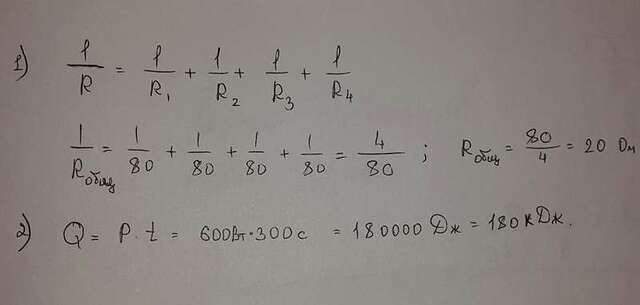 1) 1/R = 1/R₁ + 1/R₂ + 1/R₃ + 1/R₄
1/Rобщ = 1/80 + 1/80 + 1/80 + 1/80 = 4/80 ; Rобщ = 80/4 = 20 Ом
2) Q = P · t = 600Вт · 300с = 180000 Дж = 180кДж.